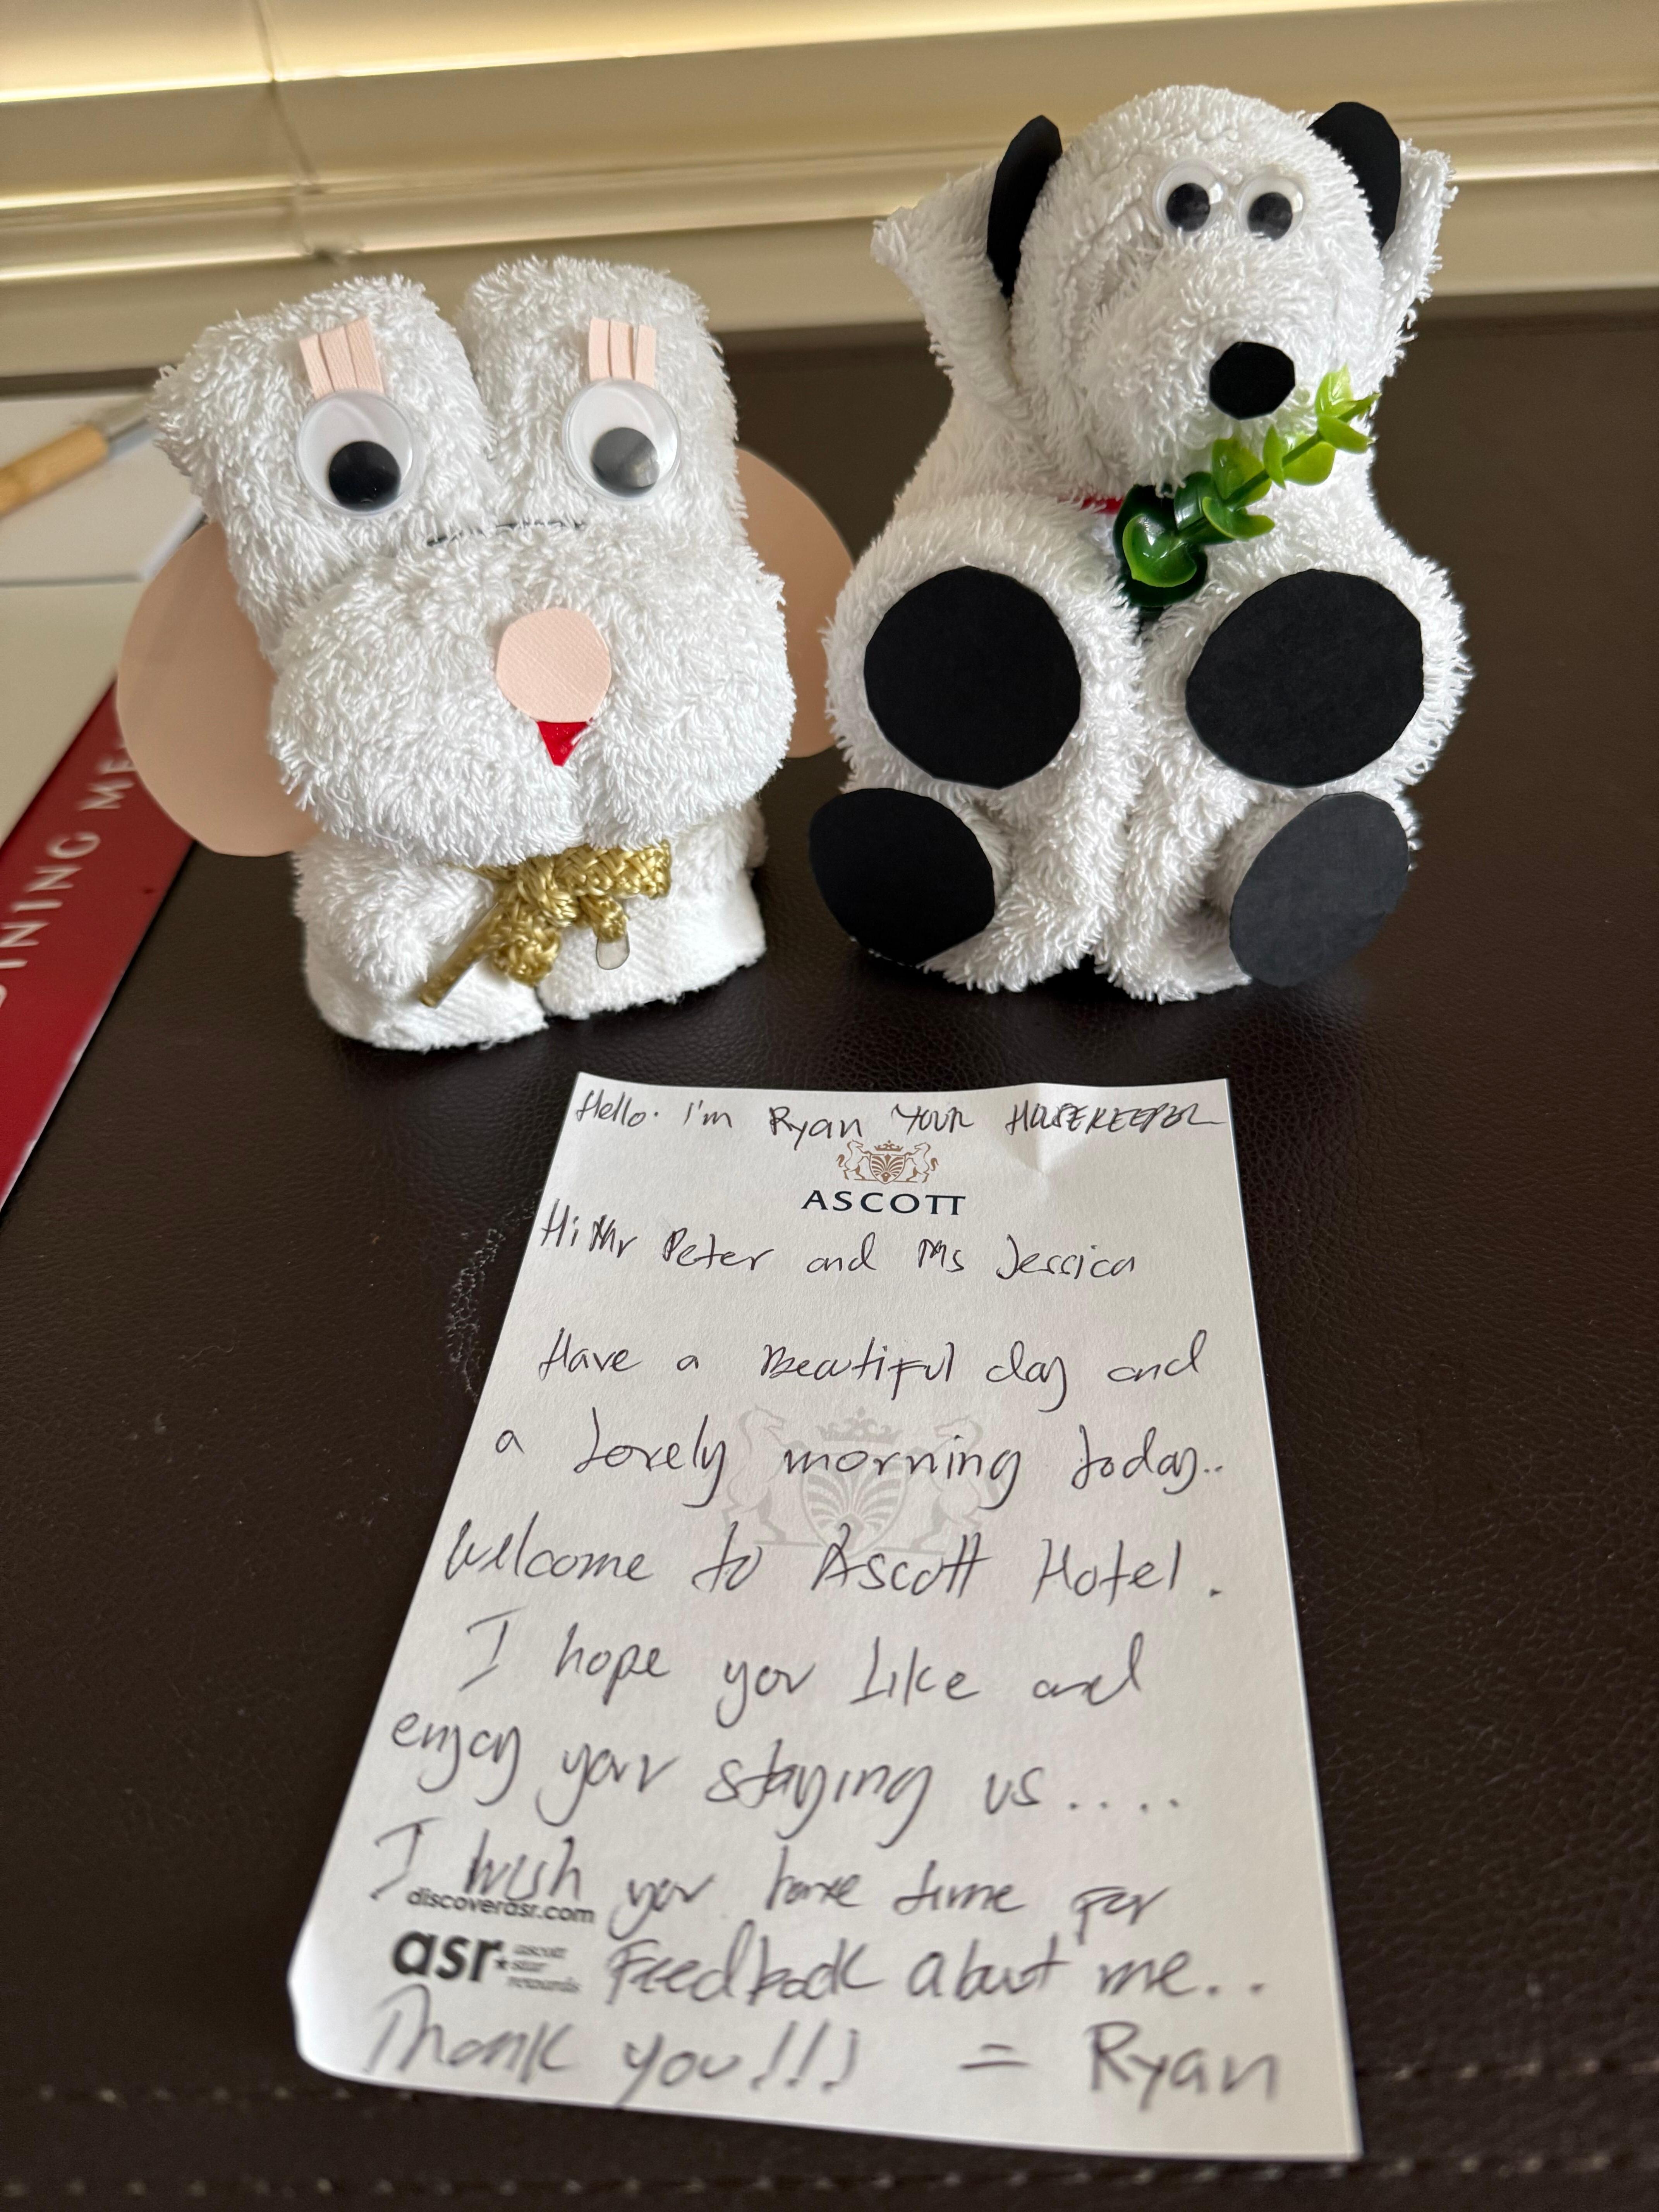 DINING ME
Hello. I'm Ryan YOUR HOUSEKEEPER
ASCOTT
Hi Mr Peter and Ms Jessica
Have a Beautiful day and
a lovely morning today..
Welcome to Ascott Hotel.
I hope you like and
enjoy your staying us....
I wish you have time for
discoverasr.com
asr ascott star rewards
Feedback about me..
Thank you!!! = Ryan